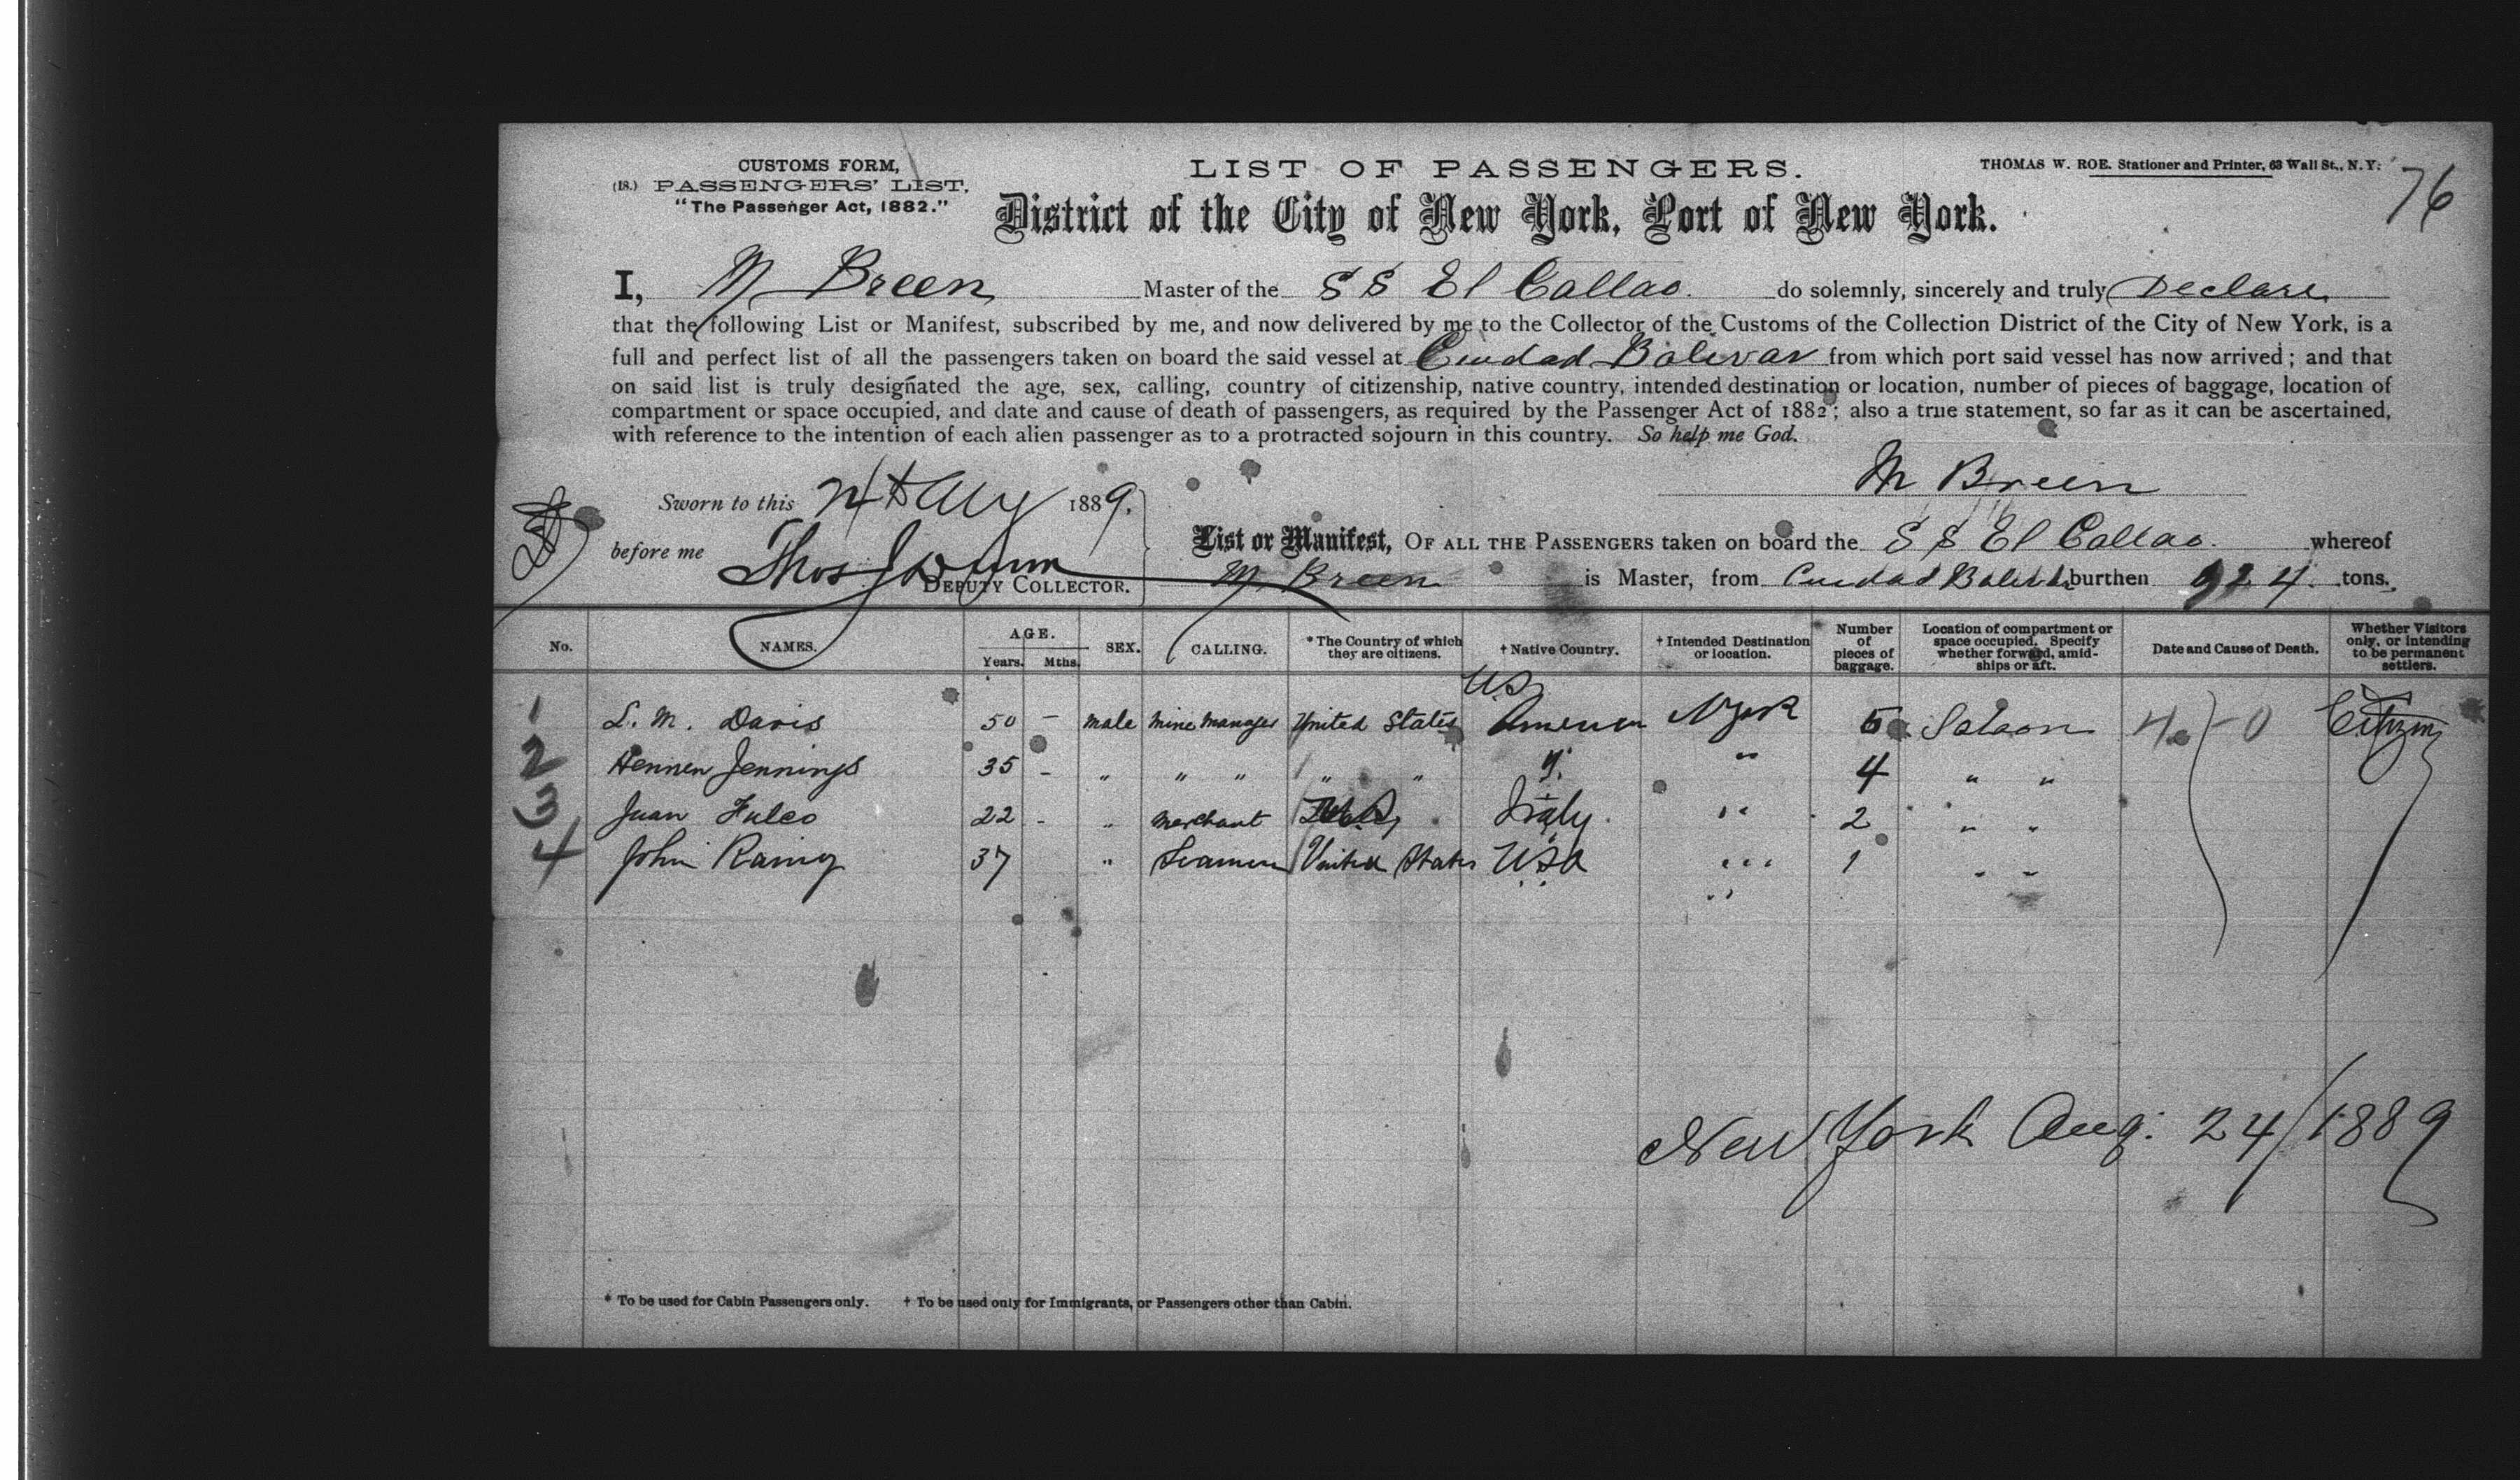 CUSTOMS FORM,
(18.) PASSENGERS' LIST,
"The Passenger Act, 1882."
LIST OF PASSENGERS.
THOMAS W. ROE. Stationer and Printer, 63 Wall St., N.Y.
76
District of the City of New York, Port of New York.
I, M Breen Master of the S S El Callao. do solemnly, sincerely and truly Declare
that the following List or Manifest, subscribed by me, and now delivered by me to the Collector of the Customs of the Collection District of the City of New York, is a
full and perfect list of all the passengers taken on board the said vessel at Ciudad Bolivar from which port said vessel has now arrived; and that
on said list is truly designated the age, sex, calling, country of citizenship, native country, intended destination or location, number of pieces of baggage, location of
compartment or space occupied, and date and cause of death of passengers, as required by the Passenger Act of 1882; also a true statement, so far as it can be ascertained,
with reference to the intention of each alien passenger as to a protracted sojourn in this country. So help me God.
M Breen
Sworn to this 24 Aug 1889.
before me Thos
DEPUTY COLLECTOR.
List or Manifest, OF ALL THE PASSENGERS taken on board the S S El Callao. whereof
M Breen is Master, from Ciudad Bolivar burthen 924 tons.
No. NAMES. AGE. Years. Mths. SEX. CALLING. * The Country of which they are citizens. † Native Country. † Intended Destination or location. Number of pieces of baggage. Location of compartment or space occupied. Specify whether forward, amidships or aft. Date and Cause of Death. Whether Visitors only, or intending to be permanent settlers.
US
1 L. M. Davis 50 - male mine manager United States America NYork 5 Saloon 4 - 0 Citizen
2 Hennen Jennings 35 - " " " " " " " 4 " "
3 Juan Fulco 22 - " merchant Italy " 2 " "
4 John 37 " Seaman United States USA " 1 " "
New York Aug. 24/1889
* To be used for Cabin Passengers only. † To be used only for Immigrants, or Passengers other than Cabin.